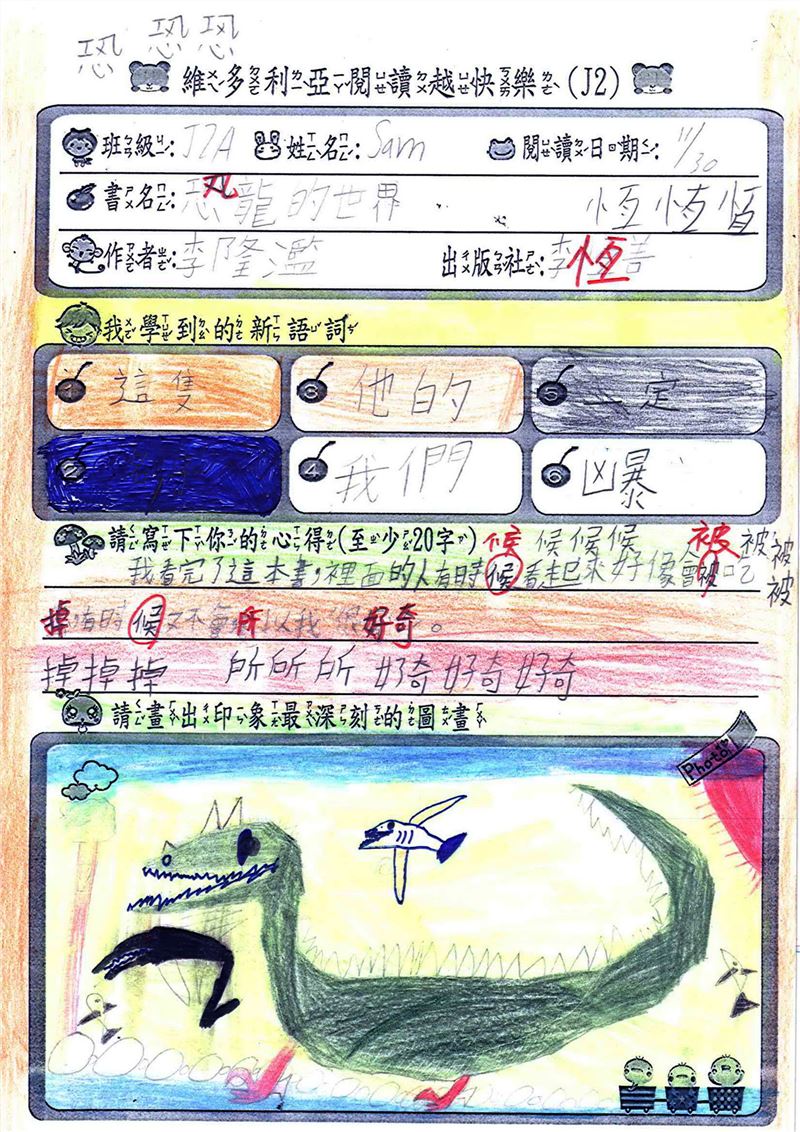 恐 恐 恐
維多利亞閱讀越快樂(J2)
班級: J2A 姓名: Sam 閱讀日期: 11/30
書名: 恐龍的世界
恆 恆 恆
作者: 李隆濫 出版社: 李恆善
我學到的新語詞
1 這隻 3 他的 5 一定
2 4 我們 6 凶暴
請寫下你的心得(至少20字) 候 候 候 候 被 被 被 被
我看完了這本書,裡面的人有時候看起來好像會被吃
掉,有時候又不會,所以我很好奇。
掉 掉 掉 所 所 所 好奇 好奇 好奇
請畫出印象最深刻的圖畫
Photo